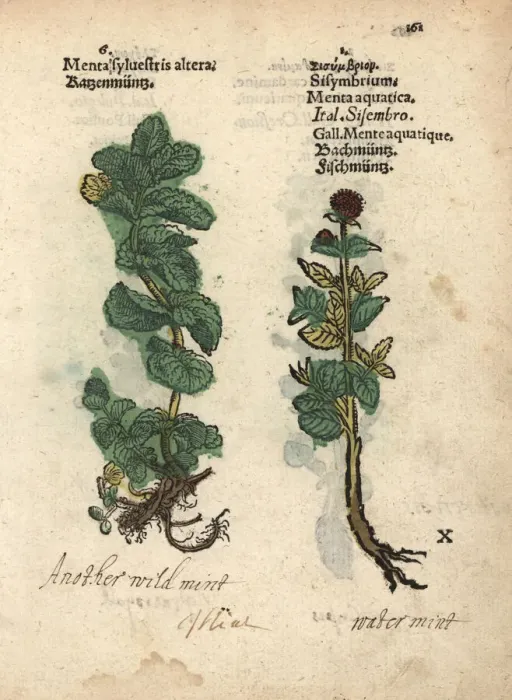 161
6.
Menta syluestris altera.
Katzenmüntz.
1.
Σισύμβριον.
Sisymbrium.
Menta aquatica.
Ital. Sisembro.
Gall. Mente aquatique.
Bachmüntz.
Fischmüntz.
X
Another wild mint
water mint